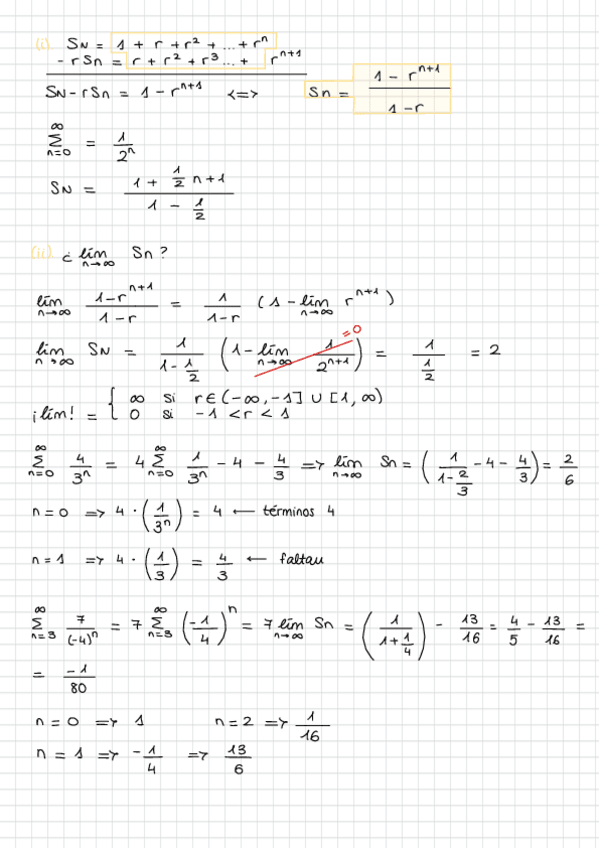 (i) SN = 1 + r + r² + ... + rⁿ
- rSn = r + r² + r³ ... + rⁿ⁺¹
SN - rSn = 1 - rⁿ⁺¹ <=> Sn = (1 - rⁿ⁺¹)/(1 - r)
∑_{n=0}^{∞} = 1/2ⁿ
SN = (1 + 1/2 n+1)/(1 - 1/2)
(ii) ¿ lím_{n→∞} Sn?
lím_{n→∞} (1 - rⁿ⁺¹)/(1 - r) = 1/(1 - r) (1 - lím_{n→∞} rⁿ⁺¹)
lím_{n→∞} SN = 1/(1 - 1/2) (1 - lím_{n→∞} 1/2ⁿ⁺¹) = 1/(1/2) = 2
= 0
¡lím! = { ∞ si r ∈ (-∞, -1] ∪ [1, ∞)
0 si -1 < r < 1
∑_{n=0}^{∞} 4/3ⁿ = 4 ∑_{n=0}^{∞} 1/3ⁿ - 4 - 4/3 => lím_{n→∞} Sn = (1/(1 - 2/3) - 4 - 4/3) = 2/6
n = 0 => 4 · (1/3ⁿ) = 4 ← términos 4
n = 1 => 4 · (1/3) = 4/3 ← faltau
∑_{n=3}^{∞} 7/(-4)ⁿ = 7 ∑_{n=3}^{∞} (-1/4)ⁿ = 7 lím_{n→∞} Sn = (1/(1 + 1/4)) - 13/16 = 4/5 - 13/16 =
= -1/80
n = 0 => 1 n = 2 => 1/16
n = 1 => -1/4 => 13/6